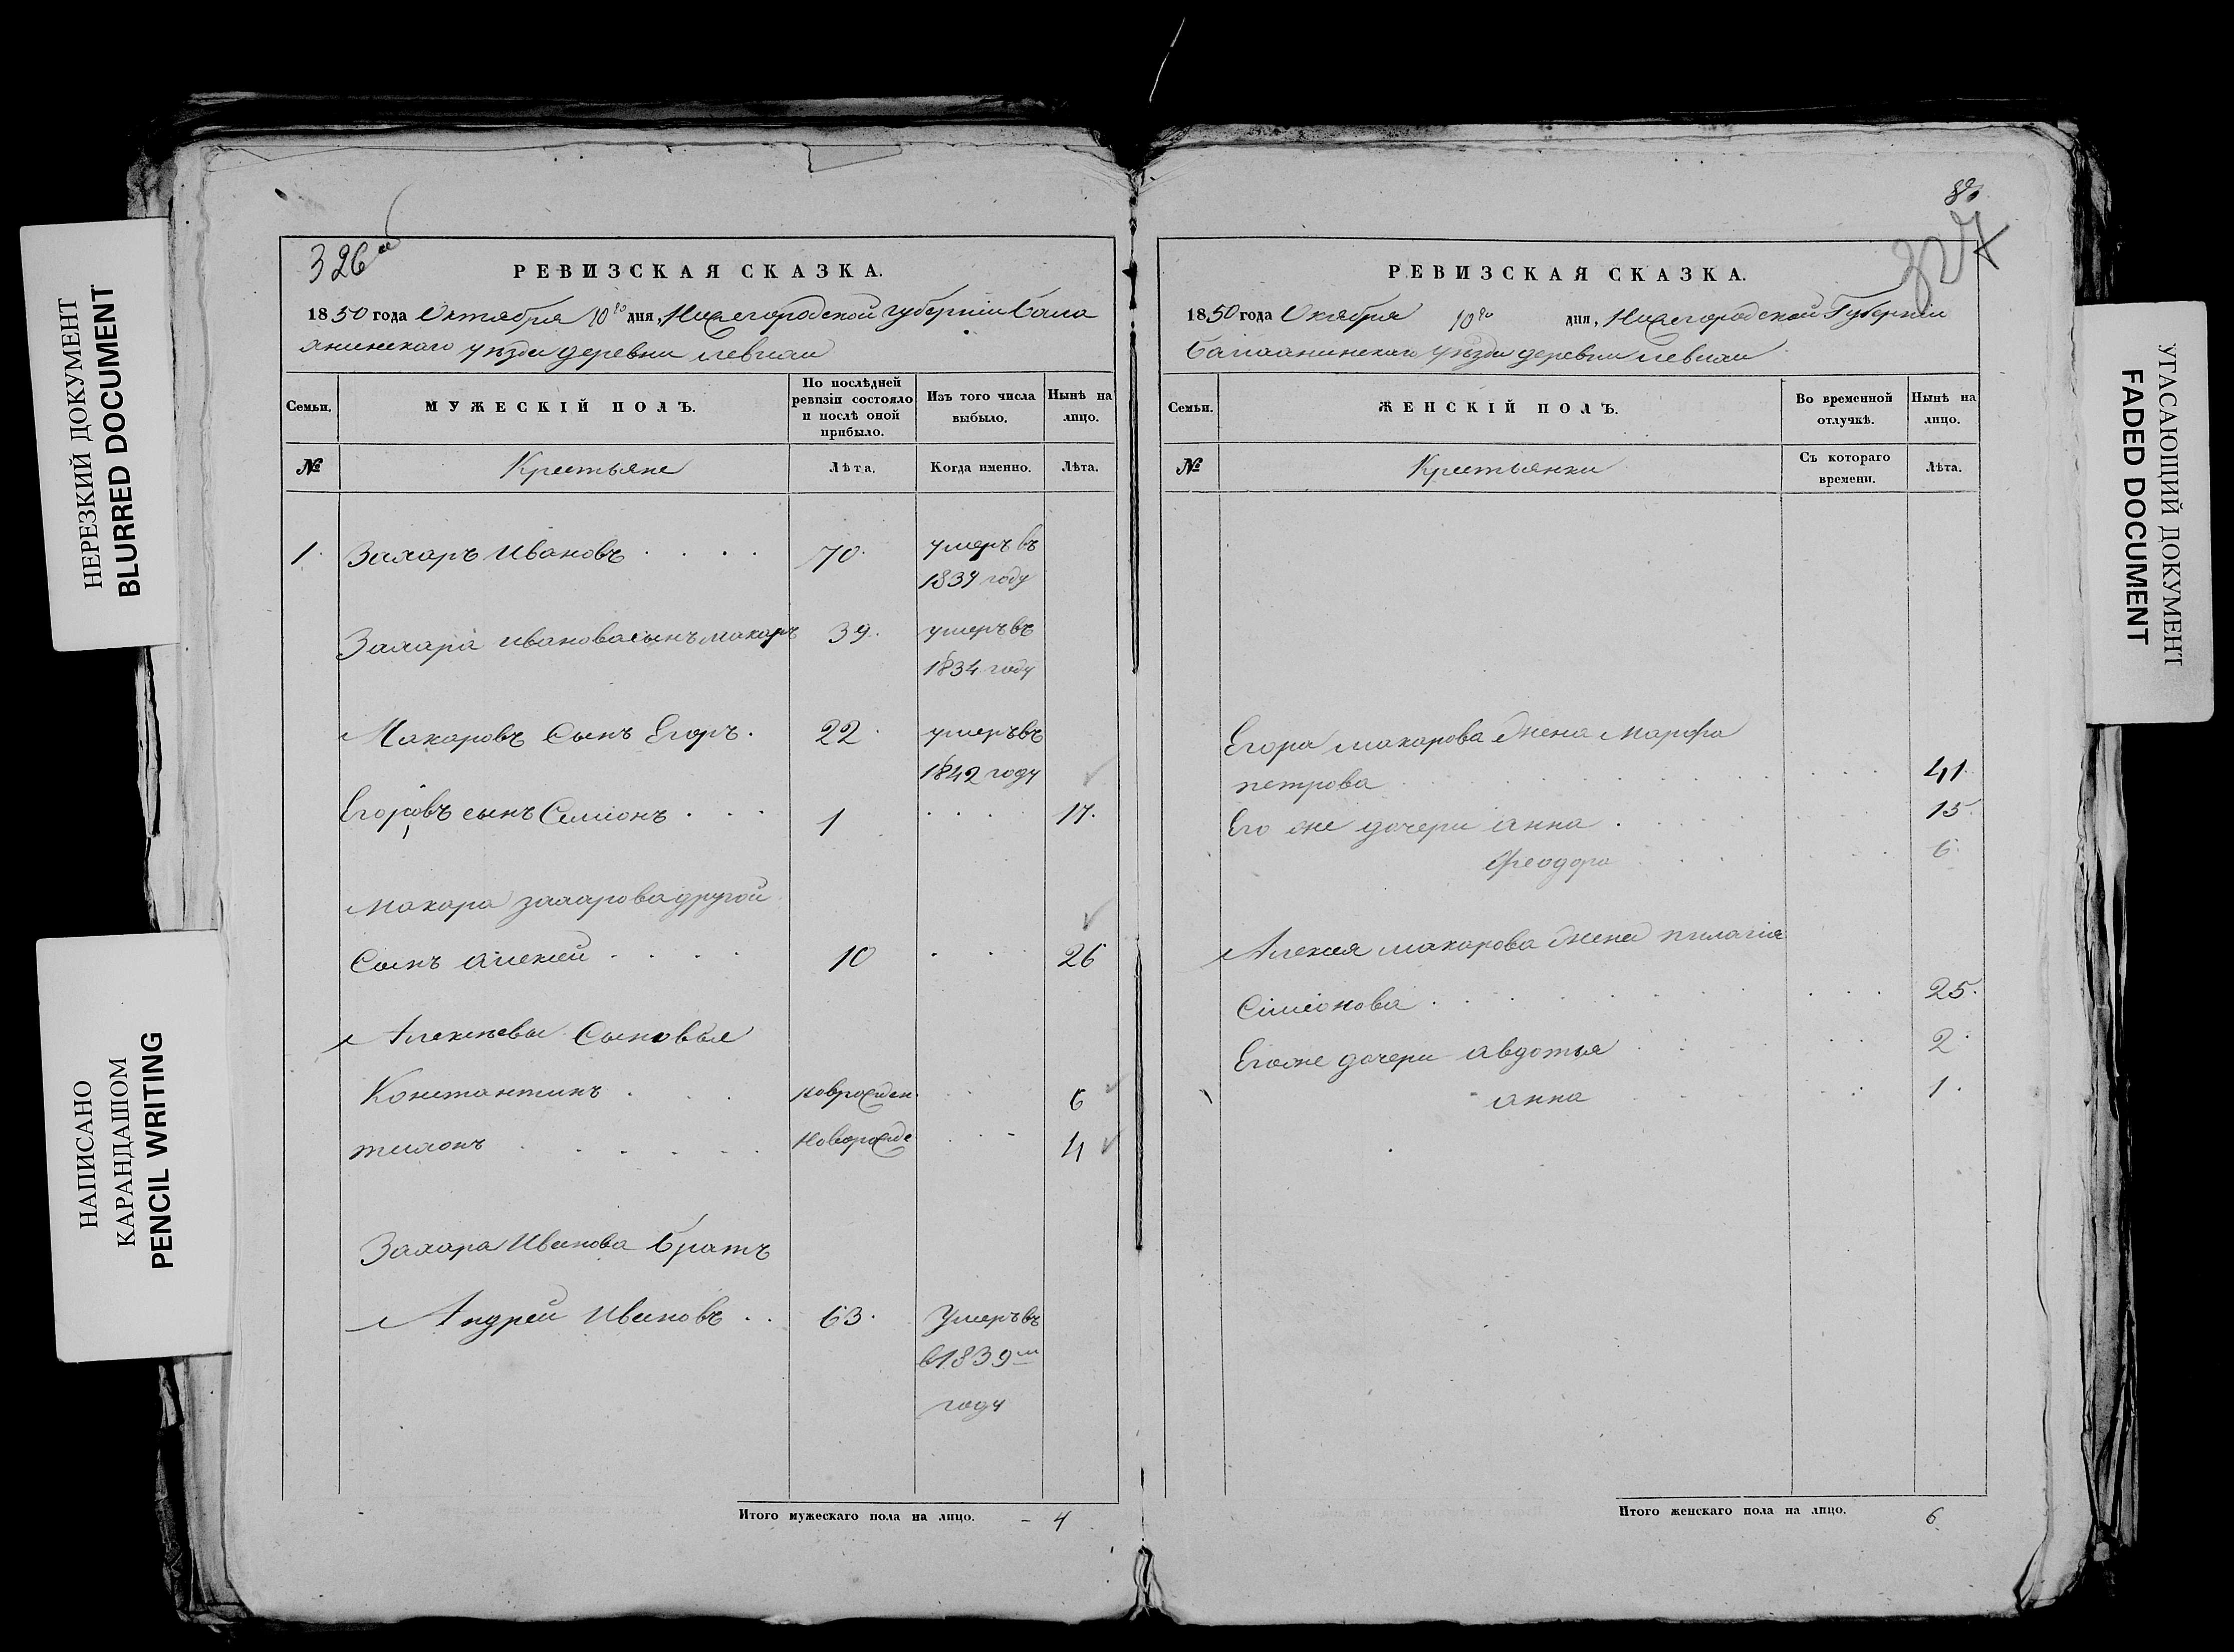 НЕРЕЗКИЙ ДОКУМЕНТ
BLURRED DOCUMENT
НАПИСАНО
КАРАНДАШОМ
PENCIL WRITING
326 об
РЕВИЗСКАЯ СКАЗКА.
1850 года Октября 10го дня, Нижегородской губернiи Бала
хнинскаго уѣзда деревни
Семьи.
МУЖЕСКІЙ ПОЛЪ.
По послѣдней ревизіи состояло и послѣ оной прибыло.
Изъ того числа выбыло.
Нынѣ на лицо.
№
Крестьяне
Лѣта.
Когда именно.
Лѣта.
1. Захаръ Ивановъ . . . . 70. умеръ въ
1839 году
Захара Иванова сынъ макаръ 39. умеръ въ
1834 году
Макаровъ Сынъ Егоръ. 22. умеръ въ
1842 году
Егоровъ сынъ Симіонъ . . . 1 . . . . 17.
Макара захарова другой
Сынъ алексей . . . . 10 . . 26
Алексѣевы Сыновья
Константинъ . . . новорожден. . . 6
тихонъ . . . . . . Новорожде . . - 4
Захара Иванова братъ
Андрей Ивановъ . . 63. Умеръ въ
в 1839м
году
Итого мужескаго пола на лицо. - 4
80
327
РЕВИЗСКАЯ СКАЗКА.
1850 года Октября 10го дня, Нижегородской Губернiи
Балахнинскаго уѣзда деревни
Семьи.
ЖЕНСКІЙ ПОЛЪ.
Во временной отлучкѣ.
Нынѣ на лицо.
№
Крестьянки
Съ котораго времени.
Лѣта.
Егора макарова жена марфа
петрова . . . . . . . 41.
Его же дочери анна . . . . . 15.
феодора . . . . . 6.
Алексея макарова жена пилагія
Симіонова . . . . . . . 25.
Егоже дочери авдотья . . . . 2.
анна . . . . 1.
Итого женскаго пола на лицо. 6.
УГАСАЮЩИЙ ДОКУМЕНТ
FADED DOCUMENT